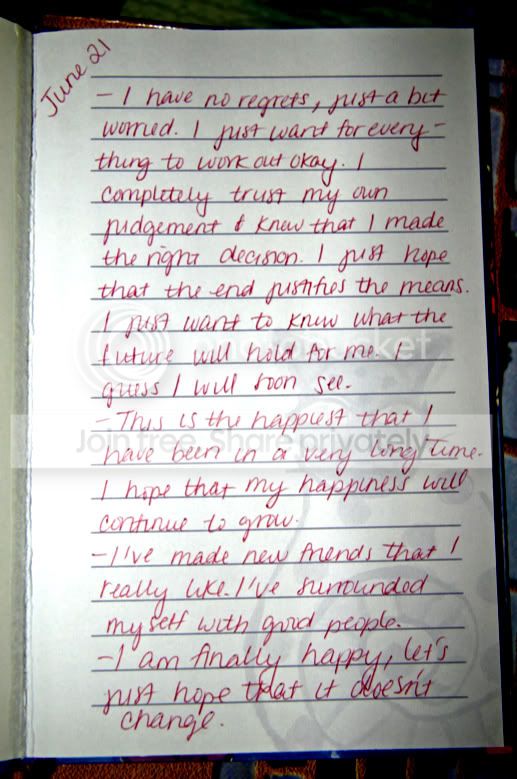 June 21
- I have no regrets, just a bit
worried. I just want for every-
thing to work out okay. I
completely trust my own
judgement & know that I made
the right decision. I just hope
that the end justifies the means.
I just want to know what the
future will hold for me. I
guess I will soon see.
- This is the happiest that I
Join free. Share privately
have been in a very long time.
I hope that my happiness will
continue to grow.
- I've made new friends that I
really like. I've surrounded
myself with good people.
- I am finally happy, let's
just hope that it doesn't
change.